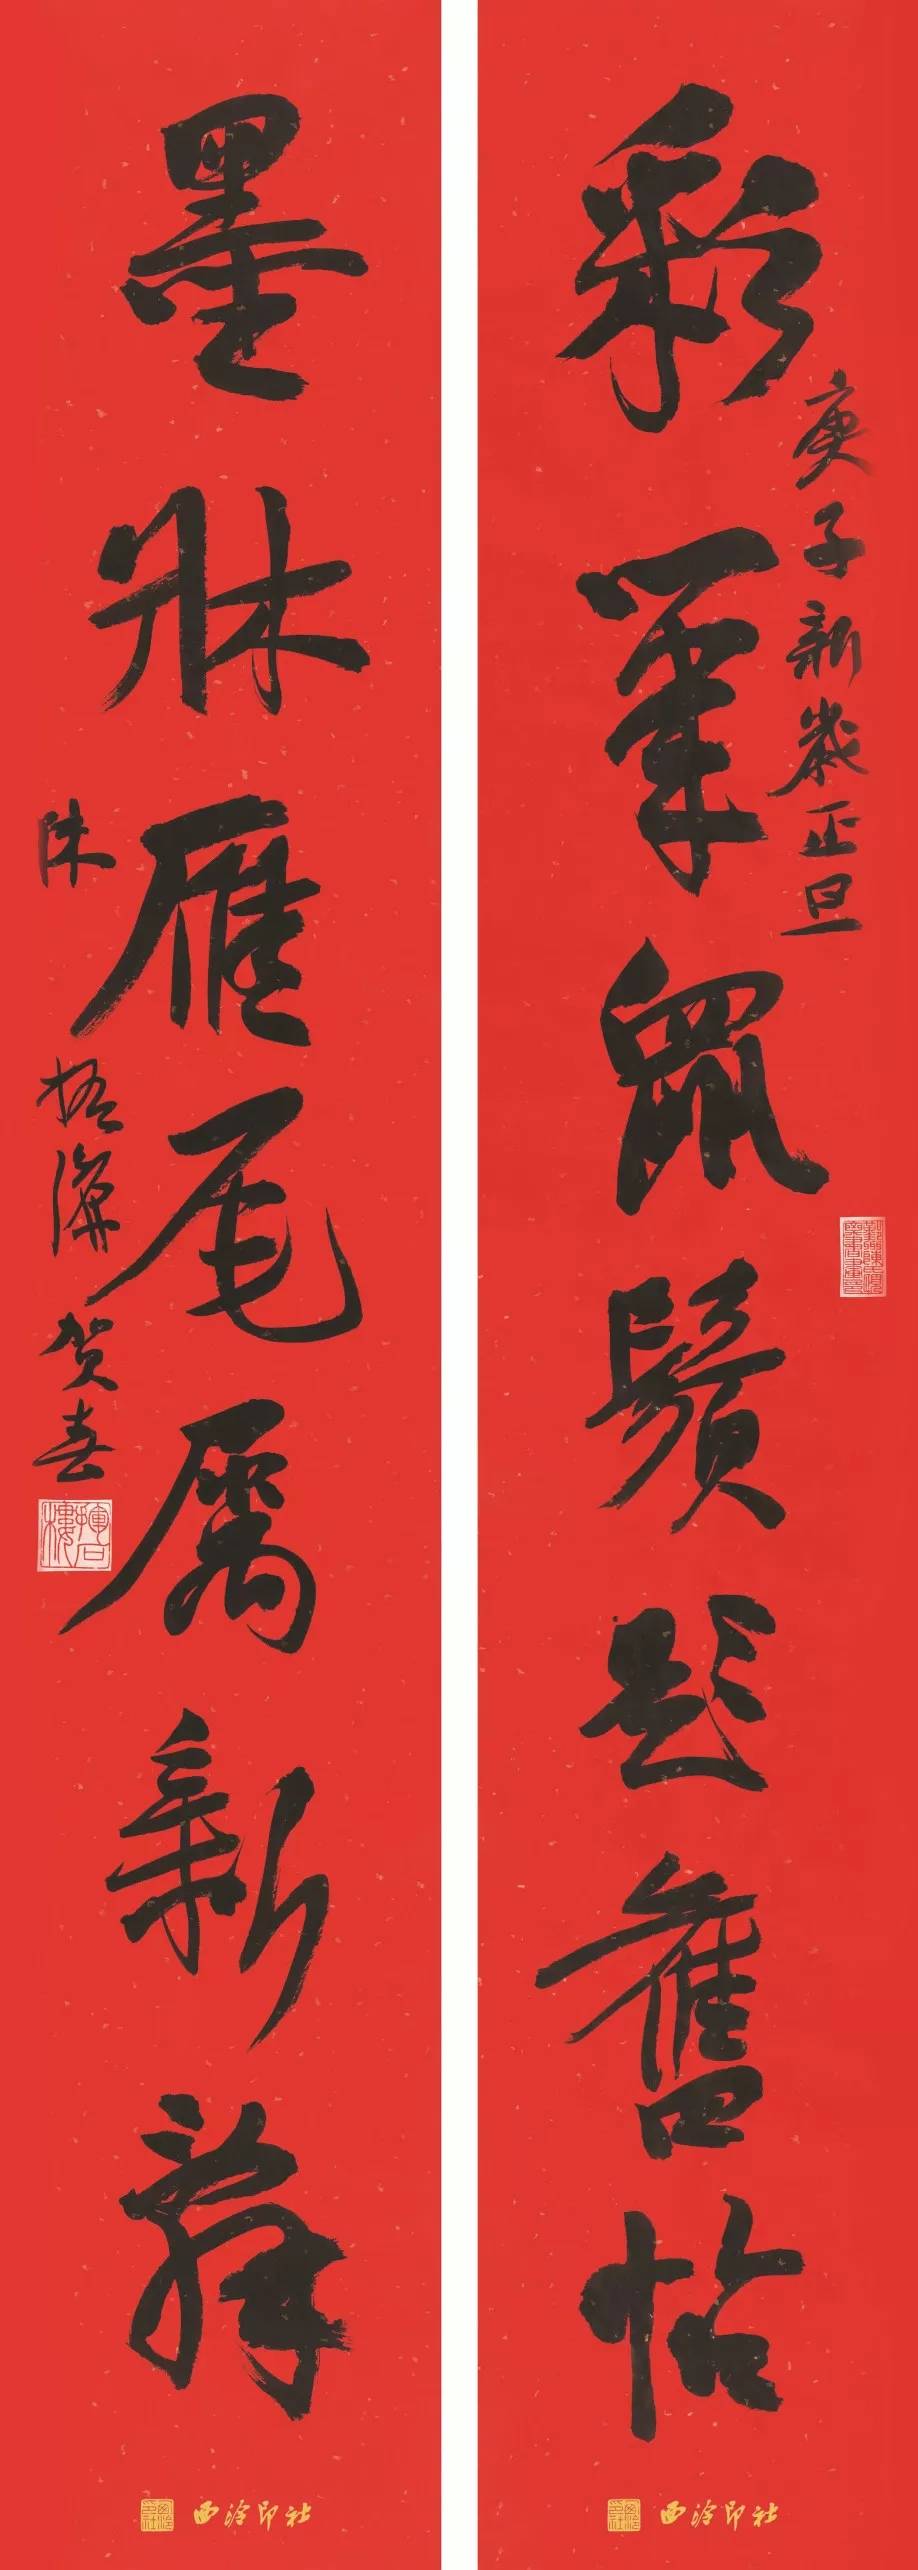 彩筆鼠鬚題舊帖
庚子新歲正旦
西泠印社
墨牀雁尾屬新辭
陳振濂賀喜
西泠印社